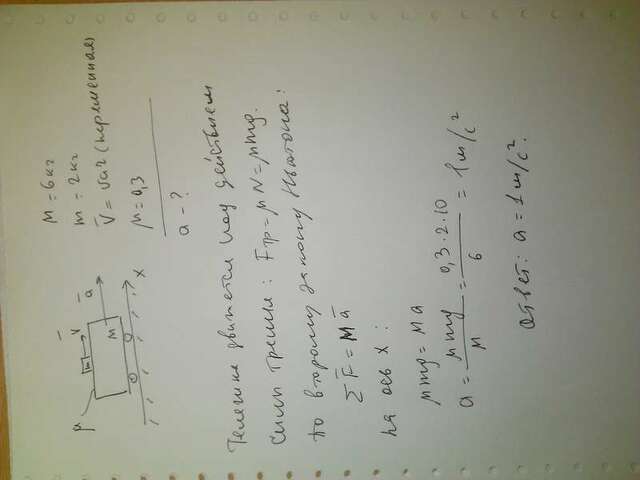 M = 6кг
m = 2кг
V̅ = var (переменная)
μ = 0,3
a - ?
μ
m
V̅
a̅
M
X
Тележка движется под действием
силы трения: Fтр = μN = μmg.
По второму закону Ньютона:
ΣF̅ = Ma̅
на ось X:
μmg = Ma
a = μmg/M = 0,3·2·10/6 = 1 м/с²
Ответ: a = 1 м/с².